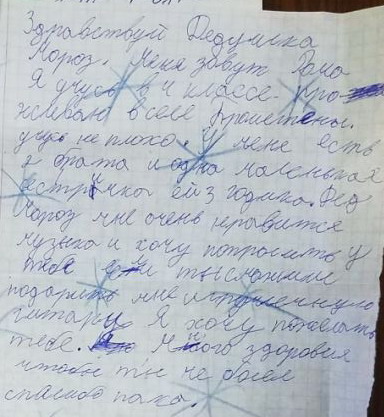 Здравствуй Дедушка
Мороз. Меня зовут Рома
Я учусь в 4 классе. Про
живаю в селе
учусь не плохо. У меня есть
2 брата и одна маленькая
сестрычка ей 3 годика. Дед
Мороз мне очень нравится
музыка и хочу попросить у
тебя
подарить мне
гитару Я хочу пожелать
тебе. Много здоровия
чтобы ты не болел
спасибо пока.